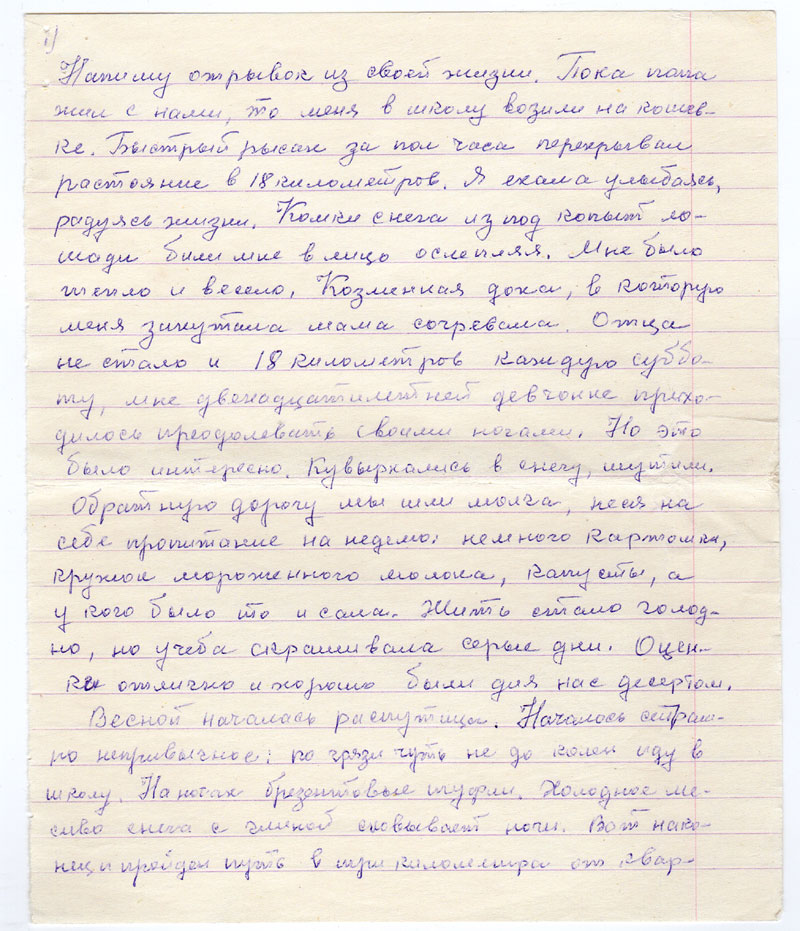 1)
Напишу отрывок из своей жизни. Пока папа
жил с нами, то меня в школу возили на кошев-
ке. Быстрый рысак за пол часа перекрывал
растояние в 18 километров. Я ехала улыбаясь,
радуясь жизни. Комки снега из под копыт ло-
шади били мне в лицо ослепляя. Мне было
тепло и весело. Козлинная доха, в которую
меня закутала мама согревала. Отца
не стало и 18 километров каждую суббо-
ту, мне двенадцатилетней девчонке прихо-
дилось преодолевать своими ногами. Но это
было интересно. Кувыркались в снегу, шутили.
Обратную дорогу мы шли молча, неся на
себе пропитание на неделю: немного картошки,
кружок мороженного молока, капусты, а
у кого было то и сала. Жить стало голод-
но, но учеба скрашивала серые дни. Оцен-
ки отлично и хорошо были для нас десертом.
Весной началась распутица. Началось страш-
но непривычное: по грязи чуть не до колен иду в
школу. На ногах брезентовые туфли. Холодное ме-
сиво снега с глиной сковывает ноги. Вот нако-
нец и пройден путь в три километра от квар-